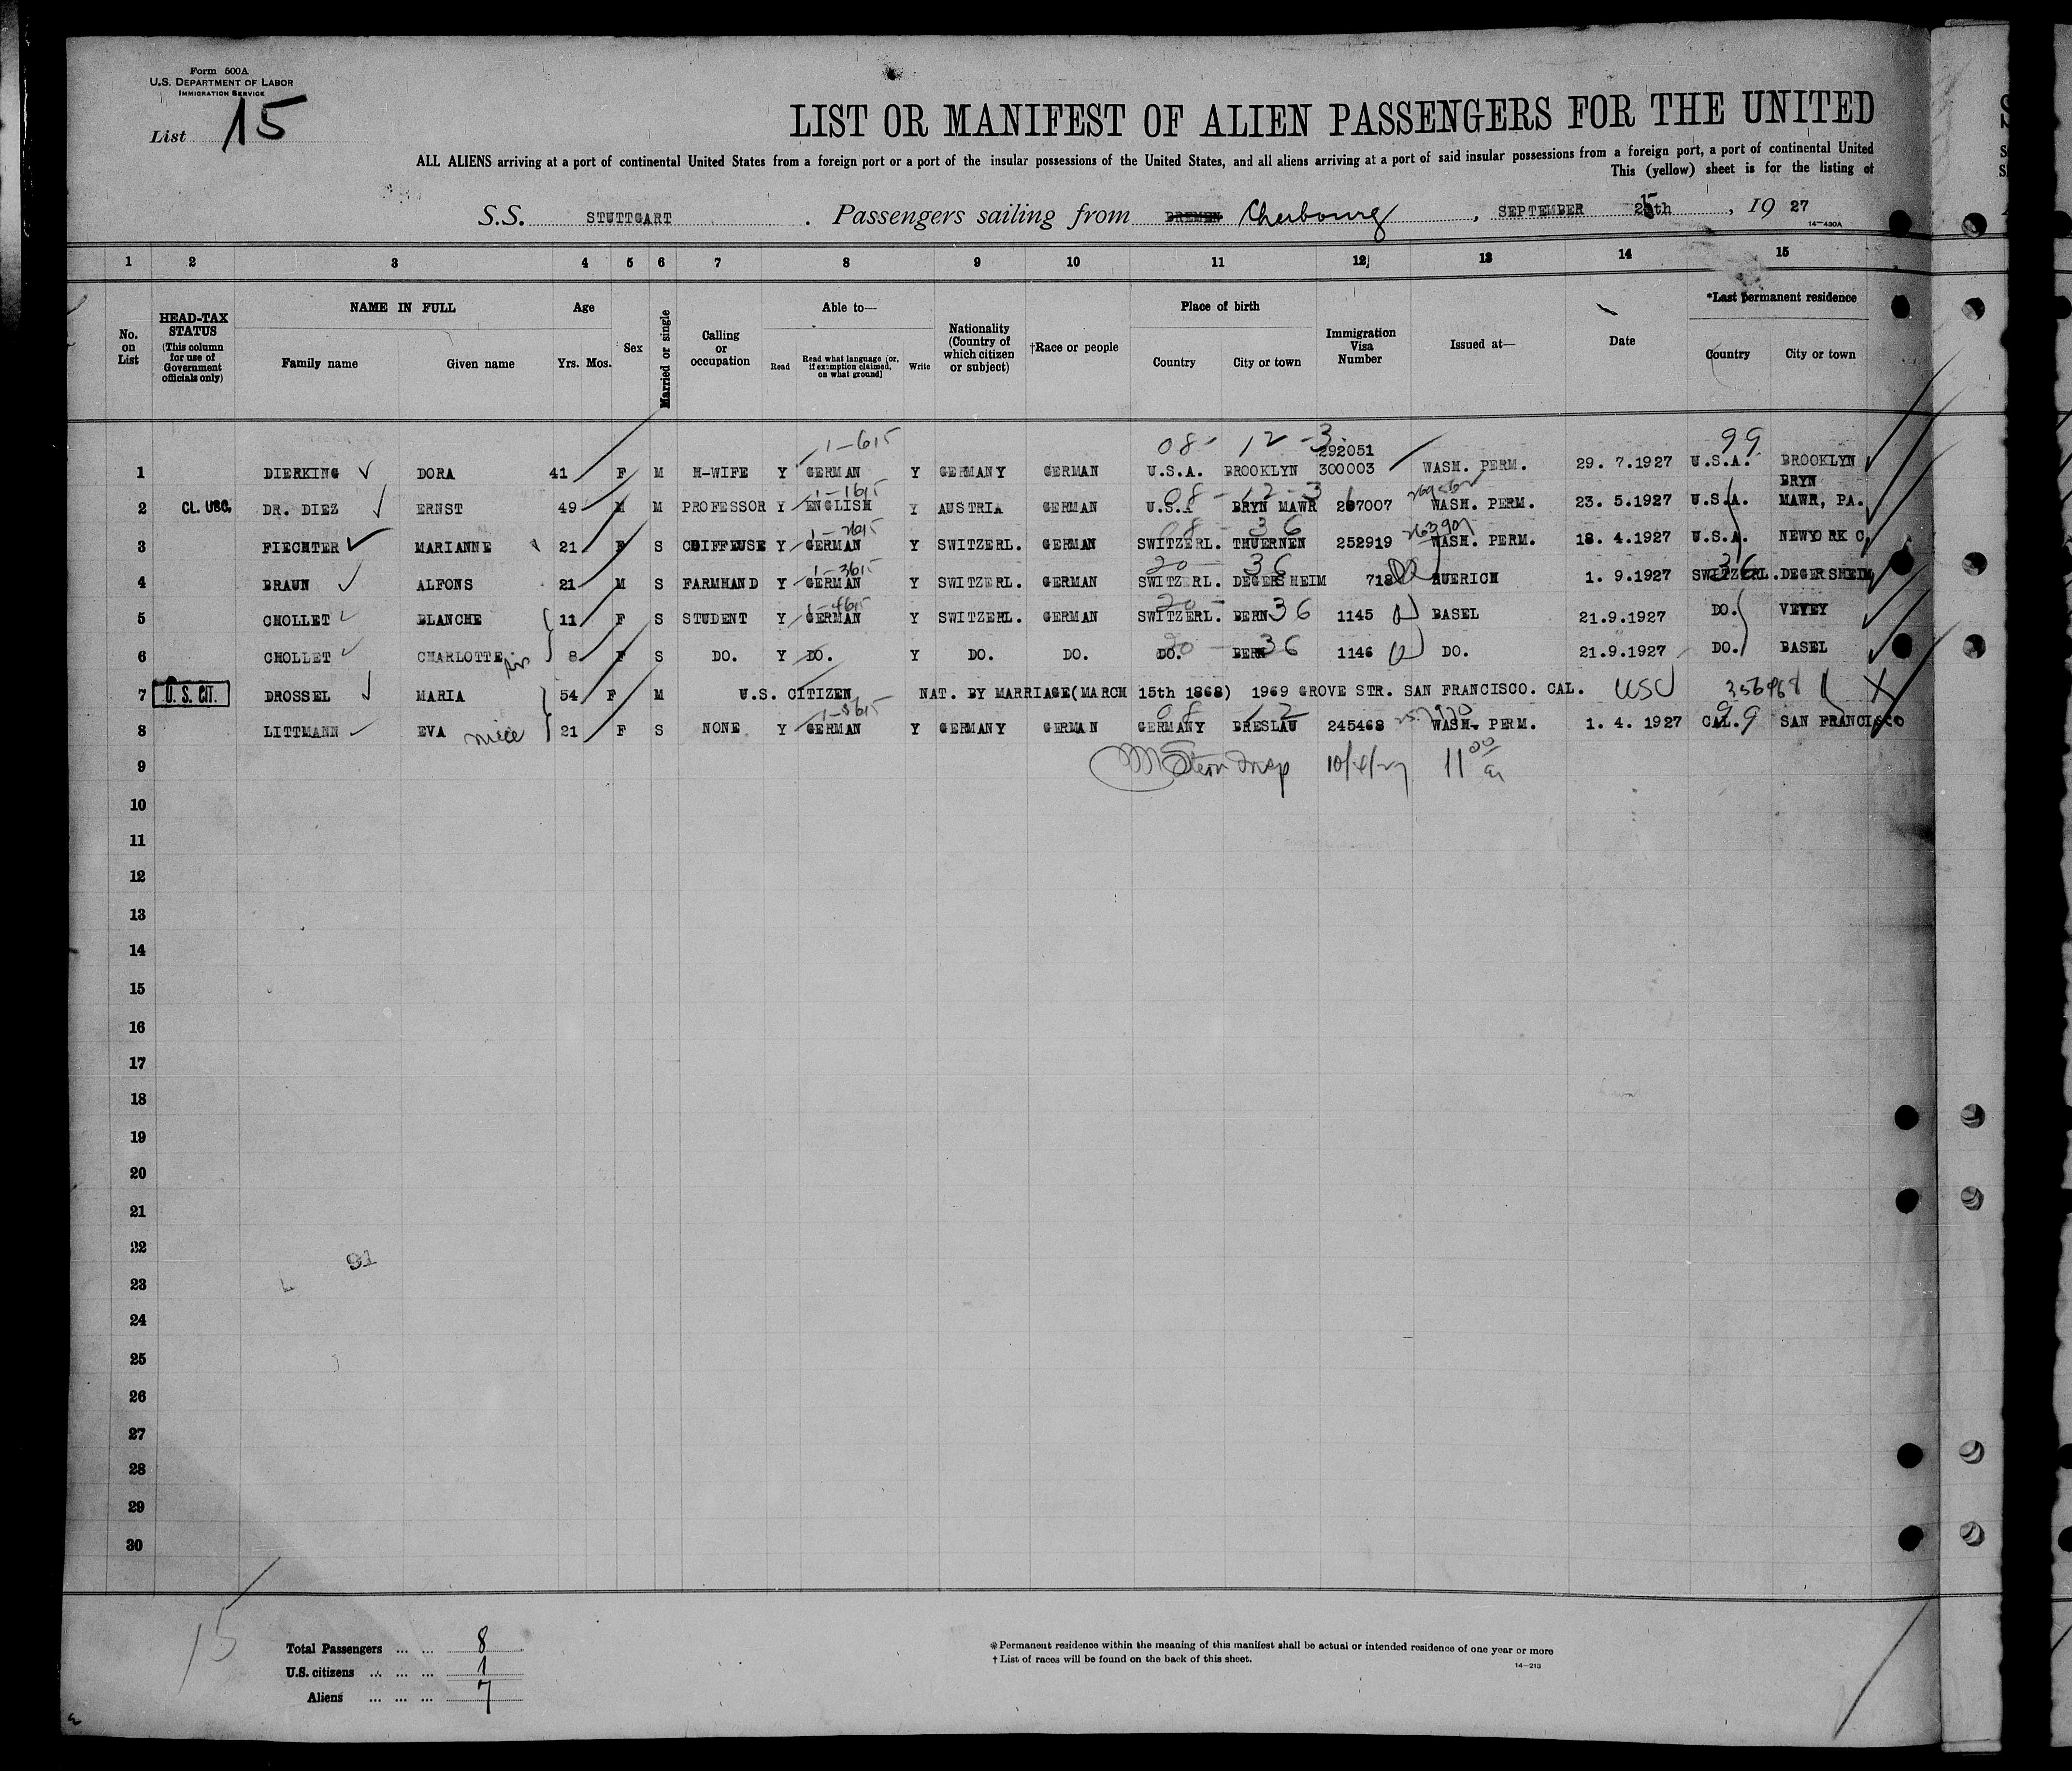 Form 500A
U.S. DEPARTMENT OF LABOR
IMMIGRATION SERVICE
List 15
LIST OR MANIFEST OF ALIEN PASSENGERS FOR THE UNITED
ALL ALIENS arriving at a port of continental United States from a foreign port or a port of the insular possessions of the United States, and all aliens arriving at a port of said insular possessions from a foreign port, a port of continental United
This (yellow) sheet is for the listing of
S.S. STUTTGART . Passengers sailing from BREMEN Cherbourg , SEPTEMBER 25th , 19 27
14-430A
1 2 3 4 5 6 7 8 9 10 11 12 13 14 15
No. on List
HEAD-TAX STATUS (This column for use of Government officials only)
NAME IN FULL
Family name Given name
Age
Yrs. Mos.
Sex
Married or single
Calling or occupation
Able to—
Read
Read what language [or, if exemption claimed, on what ground]
Write
Nationality (Country of which citizen or subject)
†Race or people
Place of birth
Country City or town
Immigration Visa Number
Issued at—
Date
*Last permanent residence
Country City or town
1-615 08- 12-3 292051 99
1 DIERKING DORA 41 F M H-WIFE Y GERMAN Y GERMANY GERMAN U.S.A. BROOKLYN 300003 WASH. PERM. 29. 7.1927 U.S.A. BROOKLYN
1-1615 08-12-3 BRYN
2 CL. USC. DR. DIEZ ERNST 49 M M PROFESSOR Y ENGLISH Y AUSTRIA GERMAN U.S.A BRYN MAWR 267007 WASH. PERM. 23. 5.1927 U.S.A. MAWR, PA.
1-2615 08-36 263901
3 FIECHTER MARIANNE 21 F S COIFFEUSE Y GERMAN Y SWITZERL. GERMAN SWITZERL. THUERNEN 252919 WASH. PERM. 18. 4.1927 U.S.A. NEWYORK C.
1-3615 20- 36 36
4 BRAUN ALFONS 21 M S FARMHAND Y GERMAN Y SWITZERL. GERMAN SWITZERL. DEGERSHEIM 718 ZUERICH 1. 9.1927 SWITZERL. DEGERSHEIM
1-4615 20-
5 CHOLLET BLANCHE 11 F S STUDENT Y GERMAN Y SWITZERL. GERMAN SWITZERL. BERN 36 1145 BASEL 21.9.1927 DO. VEVEY
6 CHOLLET CHARLOTTE 8 F S DO. Y DO. Y DO. DO. DO. 20- BERN 36 1146 DO. 21.9.1927 DO. BASEL
7 U. S. CIT. DROSSEL MARIA 54 F M U.S. CITIZEN NAT. BY MARRIAGE(MARCH 15th 1868) 1969 GROVE STR. SAN FRANCISCO. CAL. USC 356968 X
1-5615 08 12 99
8 LITTMANN EVA niece 21 F S NONE Y GERMAN Y GERMANY GERMAN GERMANY BRESLAU 245468 WASH. PERM. 1. 4. 1927 CAL. SAN FRANCISCO
9 M Stern Insp 10/4/27 11 00 a
10
11
12
13
14
15
16
17
18
19
20
21
22
91
23
24
25
26
27
28
29
30
15
Total Passengers ... ... 8
U.S. citizens ... ... ... 1
Aliens ... ... ... 7
*Permanent residence within the meaning of this manifest shall be actual or intended residence of one year or more
† List of races will be found on the back of this sheet.
14-213